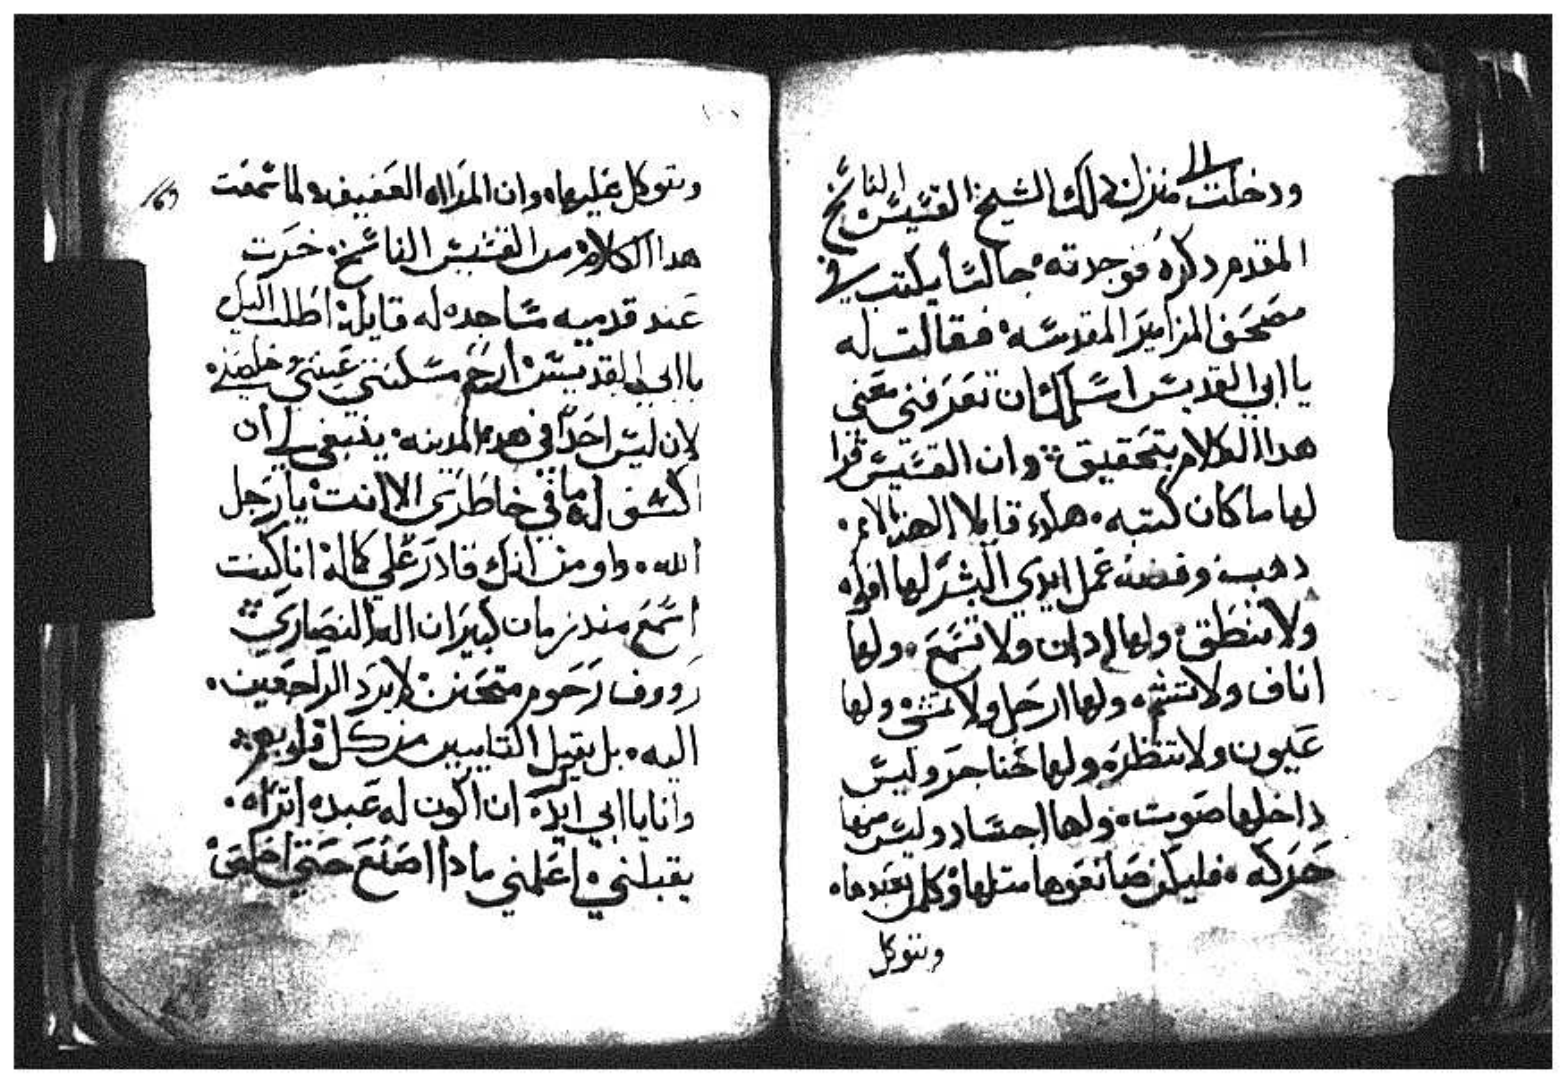 ودخلت الى منزل دلك الشيخ القسيس الناسخ
المقدم دكره فوجدته جالسا يكتب في
مصحف المزامير المقدسه فقالت له
يا ابي القديس اسلك ان تعرفني معني
هدا الكلام بتحقيق وان القسيس قرا
لها ما كان كتبه هدا قايلا الهنا الامم
دهب وفضه عمل ايدي البشر لها افواه
ولا تنطق ولها ادان ولا تسمع ولها
اناف ولا تشتم ولها ارجل ولا تمشي ولها
عيون ولا تنظر ولها حناجر وليس
داخلها صوت ولها اجساد وليس منها
حركه فليكن صانعوها متلها وكلمن يعبدها
ويتوكل
١٠١
ويتوكل عليها وان المراه العفيفه لما سمعت
هدا الكلام من القسيس الناسخ خرت
عند قدميه ساجده له قايله اطلب اليك
يا ابي القديس ارحم مسكنتي وخلصني
لان ليس احدا في هده المدينه ينبغي لي ان
اكشف له ما في خاطري الا انت يا رجل
الله واومن انك قادر علي كماله انا كنت
اسمع مند زمان كبير ان اله النصاري
رووف رحوم متحنن لا يرد الراجعين
اليه بل يقبل التايبين من كل قلوبهم
وانا يا ابي ايده ان اكون له عبده اتراه
يقبلني اعلمني مادا اصنع حتي اخلص